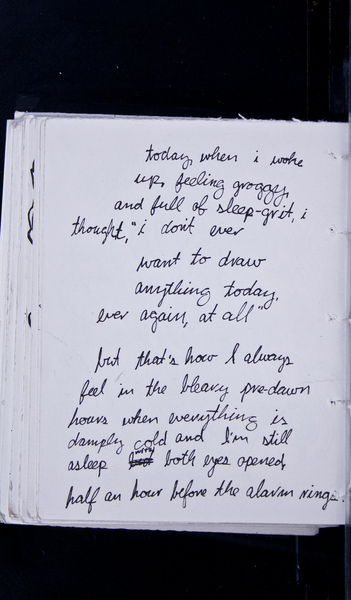 today, when i woke
up, feeling groggy,
and full of sleep-grit, i
thought, "i don't ever
want to draw
anything today,
ever again, at all"
but that's how I always
feel in the bleary pre-dawn
hours when everything is
damply cold and I'm still
asleep with both eyes opened,
half an hour before the alarm rings.